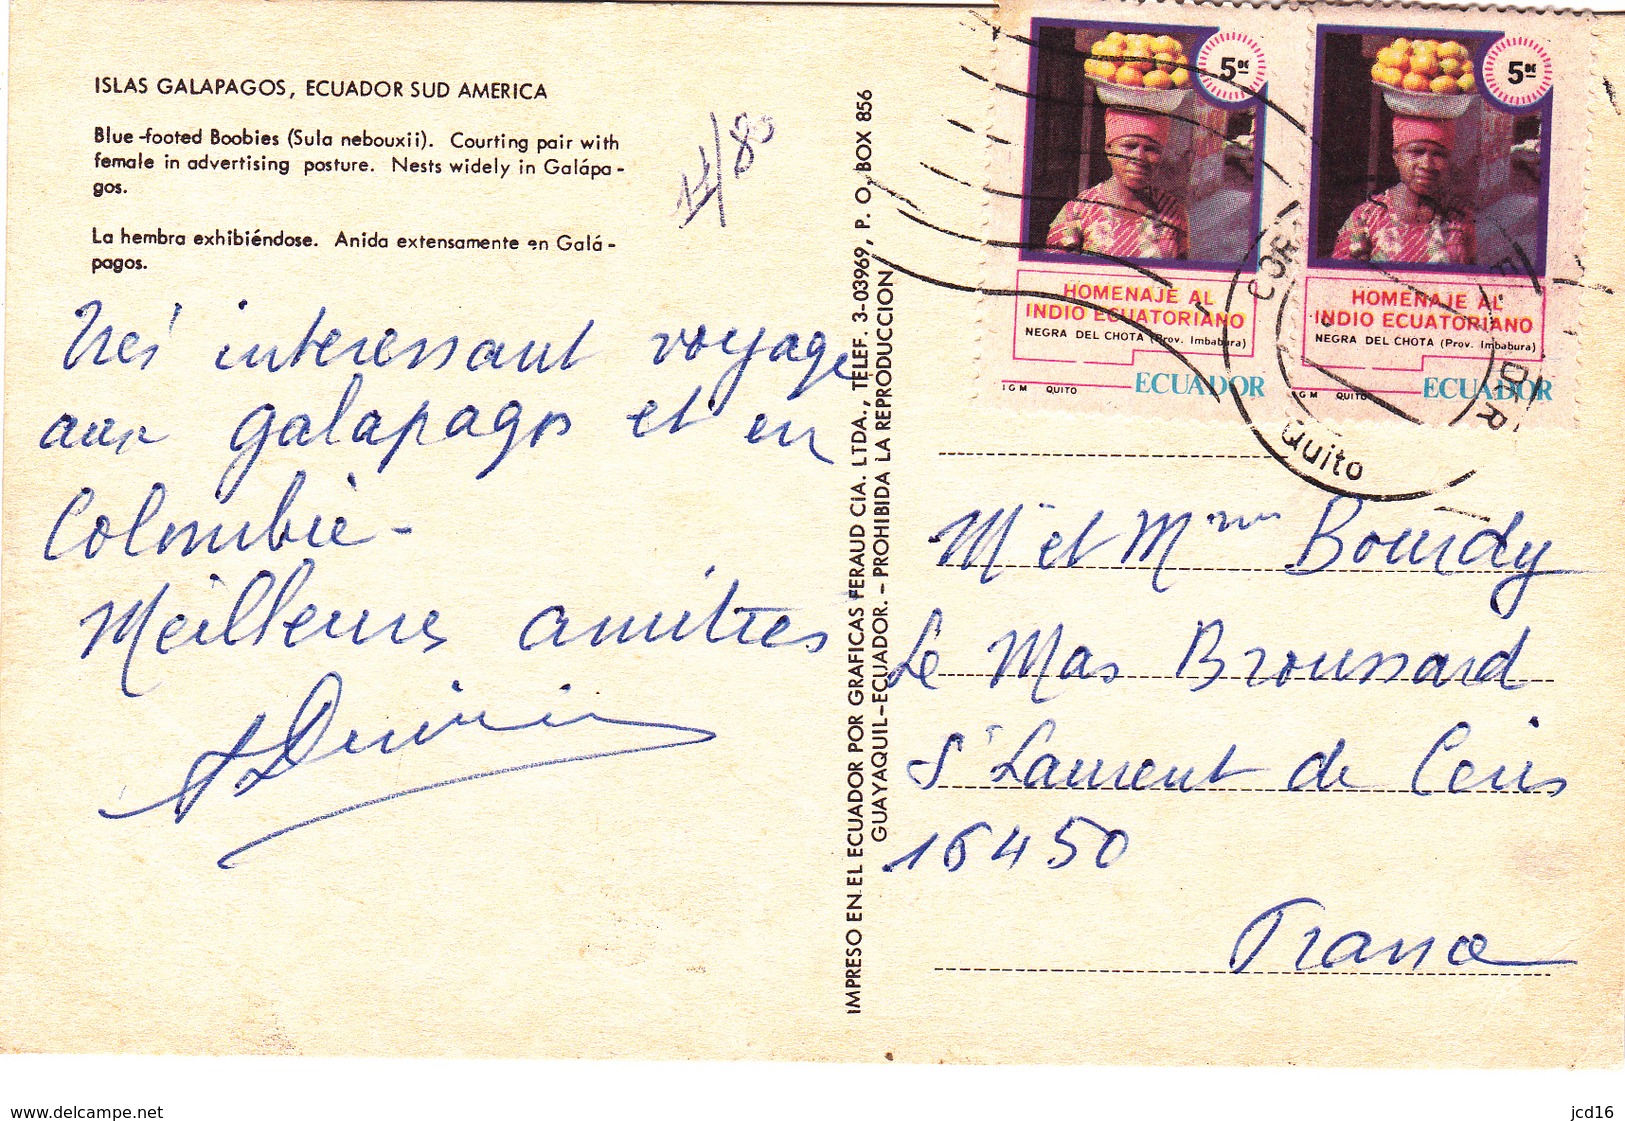 ISLAS GALAPAGOS, ECUADOR SUD AMERICA
Blue-footed Boobies (Sula nebouxii). Courting pair with
female in advertising posture. Nests widely in Galápa-
gos.
La hembra exhibiéndose. Anida extensamente en Galá-
pagos.
Très interessant voyage
aux galapagos et en
Colombie -
Meilleures amitiés
/80
IMPRESO EN EL ECUADOR POR GRAFICAS FERAUD CIA. LTDA., TELEF. 3-03969, P. O. BOX 856
GUAYAQUIL-ECUADOR. - PROHIBIDA LA REPRODUCCION
5
HOMENAJE AL
INDIO ECUATORIANO
NEGRA DEL CHOTA (Prov. Imbabura)
IGM QUITO
ECUADOR
5
HOMENAJE AL
INDIO ECUATORIANO
NEGRA DEL CHOTA (Prov. Imbabura)
IGM QUITO
ECUADOR
COR
Quito
Mr et Mme Bourdy
Le Mas Broussard
St Laurent de Ceris
16450
France
www.delcampe.net
jcd16